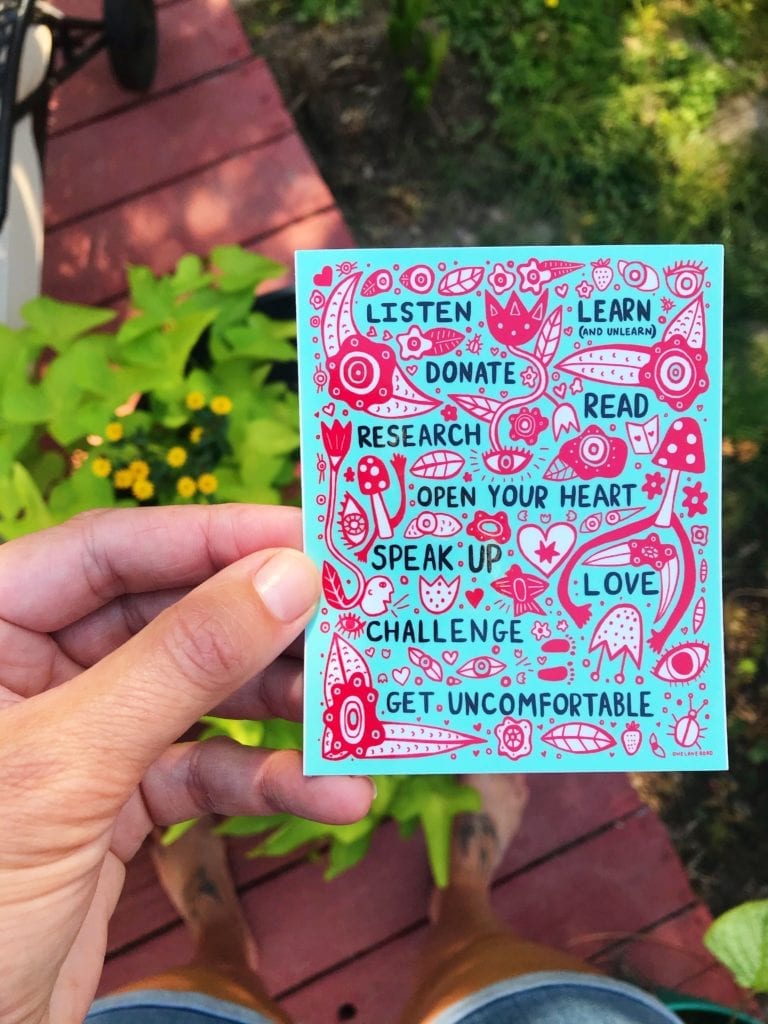 LISTEN
LEARN
(AND UNLEARN)
DONATE
READ
RESEARCH
OPEN YOUR HEART
SPEAK UP
LOVE
CHALLENGE
GET UNCOMFORTABLE
ONE LANE ROAD